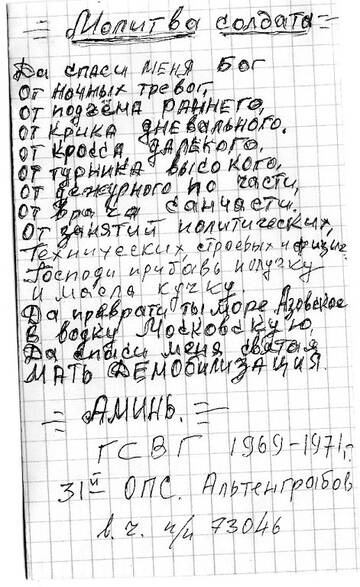 = Молитва солдата =
Да спаси меня Бог
От ночных тревог,
От подъёма раннего,
От крика дневального.
От кросса далёкого,
От турника высокого,
От дежурного по части,
От врача санчасти.
От занятий политических,
Технических, строевых и физич.
Господи прибавь получку
и масла кучку.
Да преврати ты море Азовское
В водку Московскую,
Да спаси меня святая
МАТЬ ДЕМОБИЛИЗАЦИЯ.
= АМИНЬ. =
ГСВГ 1969-1971 г.
31й ОПС. Альтенграбов
в.ч. п/п 73046